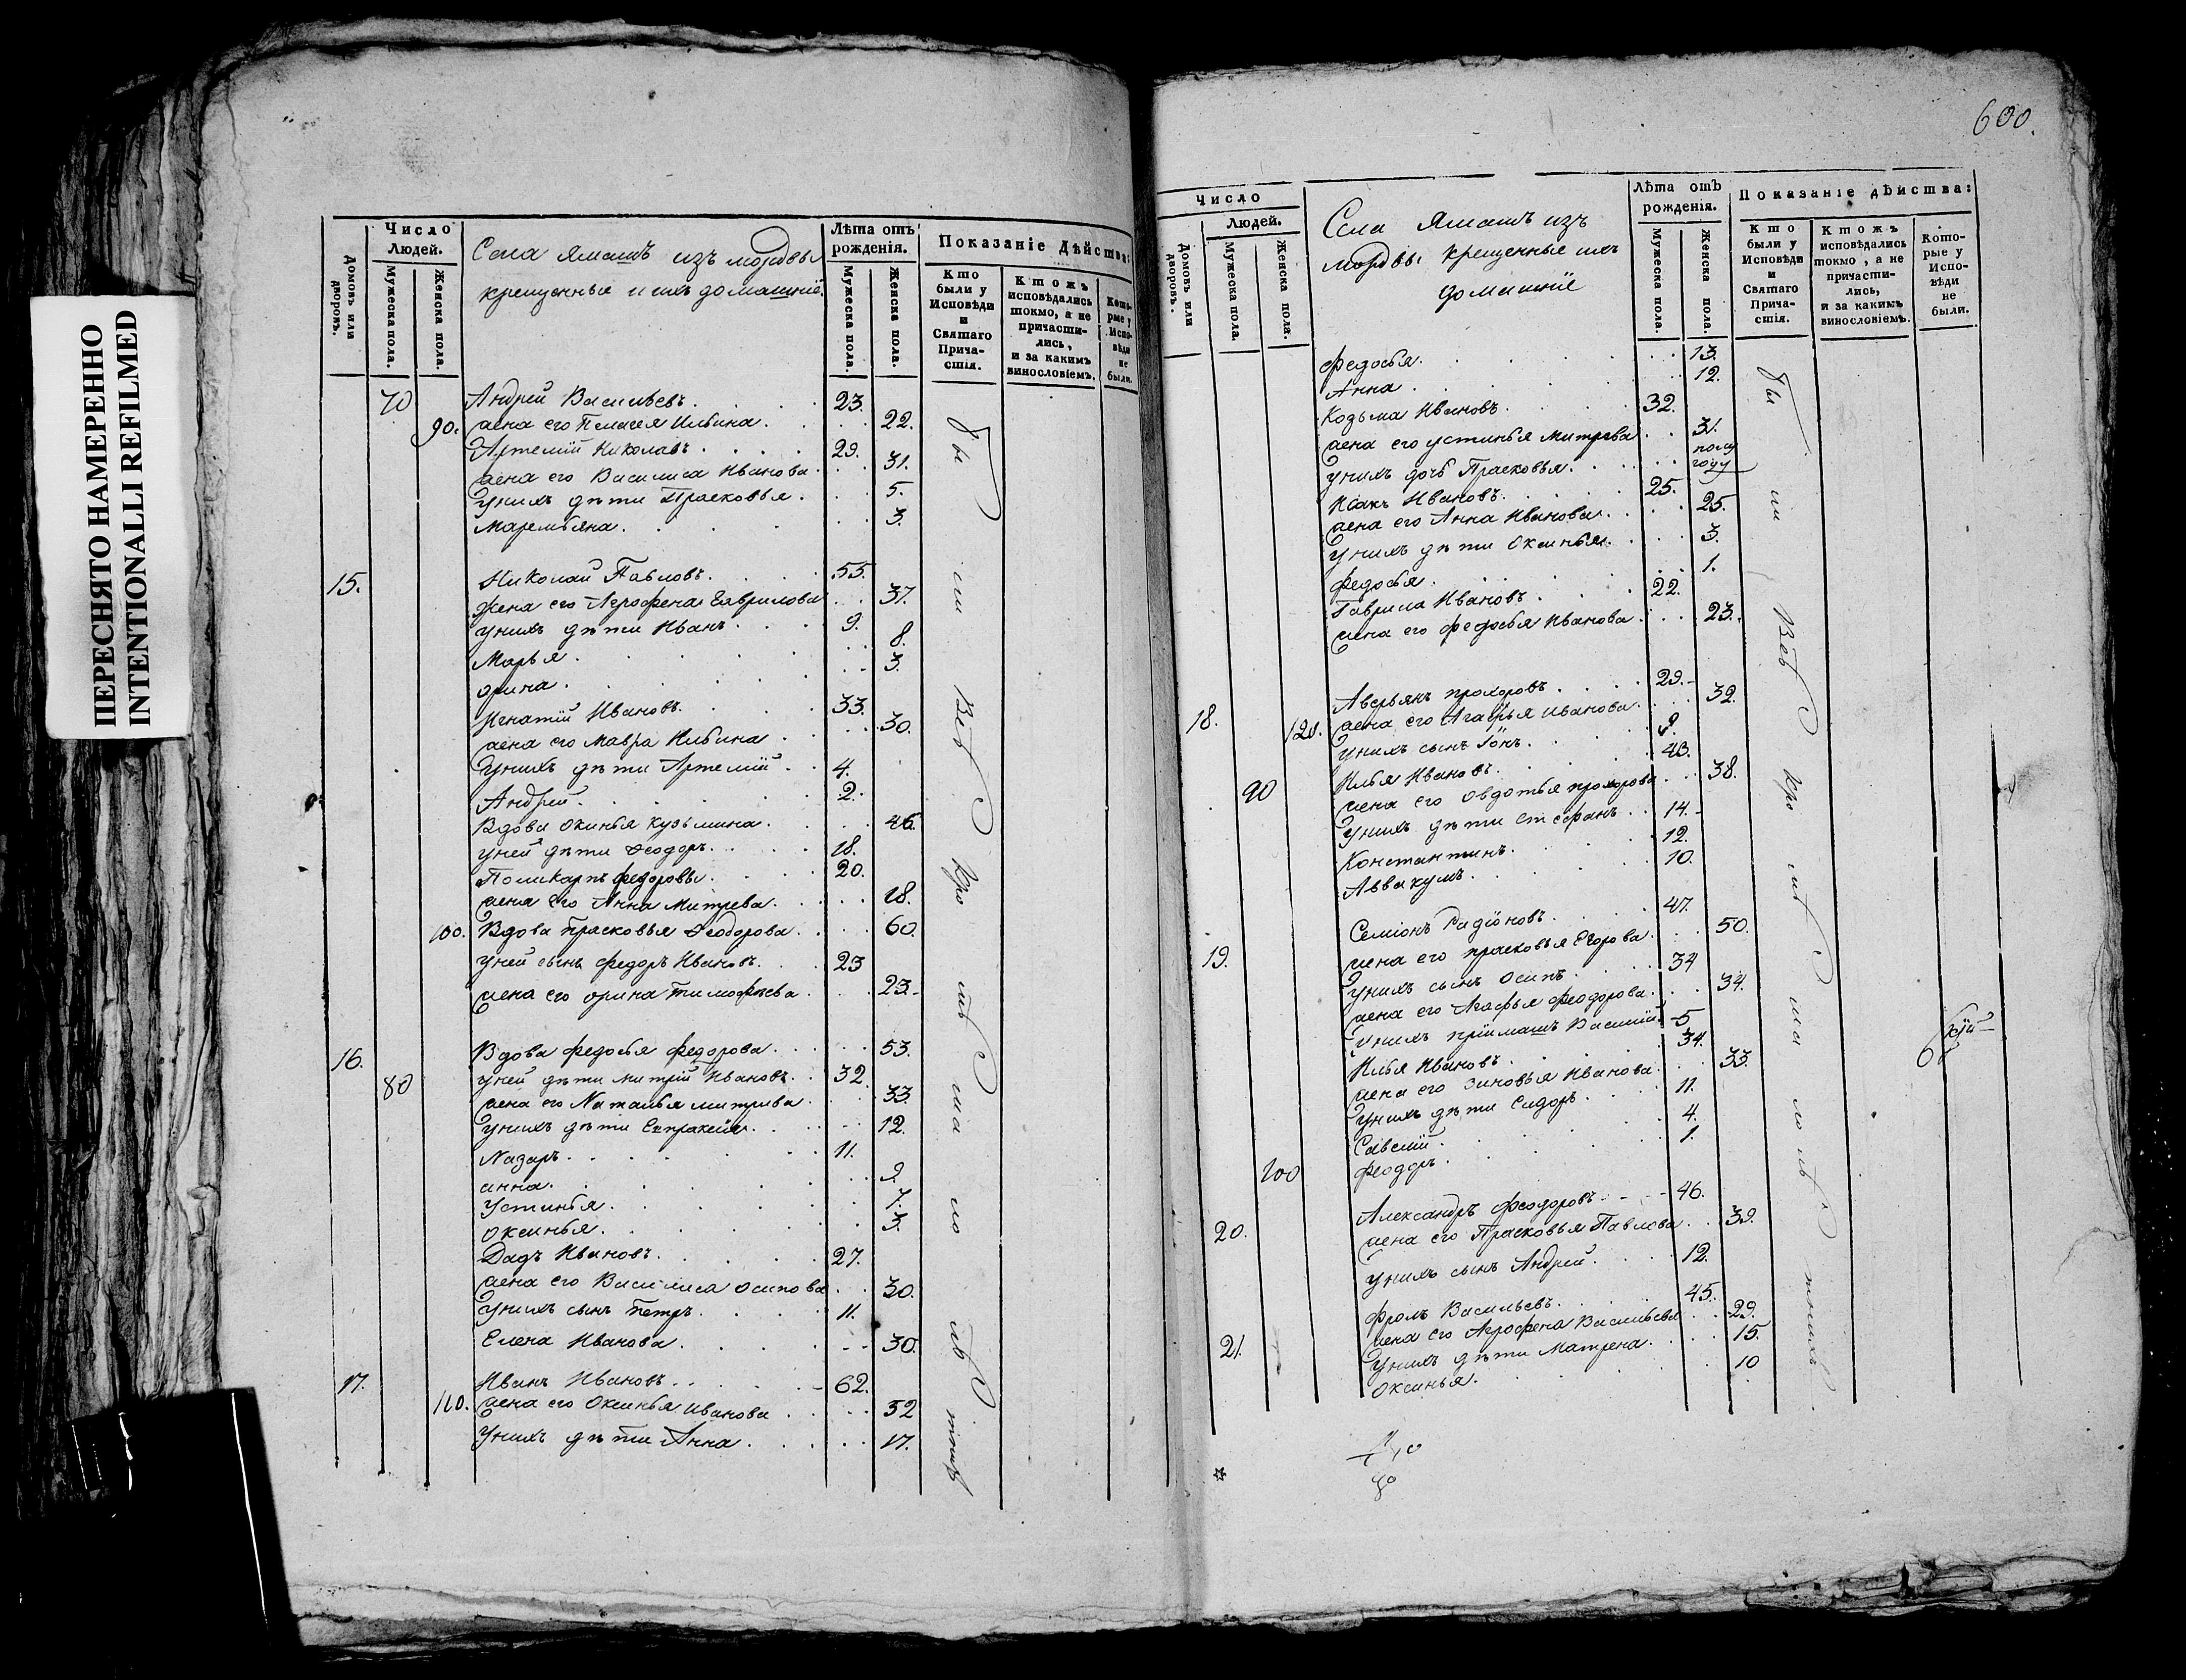 ПЕРЕСНЯТО НАМЕРЕННО
INTENTIONALLI REFILMED
Число
Людей.
Домовъ или дворовъ.
Мужеска пола.
Женска пола.
Села Ямашъ изъ мордвы
крещенные и ихъ домашнiе.
Лѣта отъ рожденiя.
Мужеска пола.
Женска пола.
Показанiе Дѣйства:
Кто были у Исповѣди и Святаго Прича-стiя.
Ктожъ исповѣдались токмо, а не причасти-лись, и за какимъ винословiемъ.
Кото-рые у Испо-вѣди не были.
70 Андрей Васильевъ. 23.
90. жена его Пелагея Ильина. 22.
Артемiй Николавъ. 29.
жена его Василиса Иванова. 31.
Унихъ дѣти Прасковья. 5.
Маремьяна. 3.
15. Николай Павловъ. 55.
жена его Агрофена Гаврилова 37.
унихъ дѣти Иванъ. 9.
Марья. 8.
орина. 3.
Игнатiй Ивановъ. 33.
жена его Мавра Ильина. 30.
Унихъ дѣти Артемiй. 4.
Андрей. 2.
Вдова окинья кузьмина. 46.
уней дѣти Феодоръ. 18.
Поликарпъ федоровы. 20.
жена его Анна Митрева. 18.
100. Вдова прасковья Феодорова. 60.
уней сынъ федоръ Ивановъ. 23
жена его орина Тимофѣева. 23.
16. Вдова федосья федорова. 53.
80 уней дѣти митрiй Ивановъ. 32.
жена его Наталья митрива. 33
унихъ дѣти Епраксия. 12.
Назаръ. 11.
анна. 9
Устинья. 7.
оксинья. 3.
Дадъ Ивановъ. 27.
жена его Василиса осипова 30.
Унихъ сынъ петръ. 11.
Елена Иванова. 30.
17. Иванъ Ивановъ. 62.
110. жена его Оксинья Иванова 52
Унихъ дѣти Анна. 17.
бы ли Всѣ кро мѣ ма ло лѣ тнихъ
600.
Число
Людей.
Домовъ или дворовъ.
Мужеска пола.
Женска пола.
Села Ямашъ изъ
мордвы крещенные ихъ
домашнiе
Лѣта отъ рожденiя.
Мужеска пола.
Женска пола.
Показанiе дѣйства:
Кто были у Исповѣди и Святаго Прича-стiя.
Ктожъ исповѣдались токмо, а не причасти-лись, и за какимъ винословiемъ.
Кото-рые у Испо-вѣди не были.
федосья. 13.
Анна. 12.
Козьма Ивановъ. 32.
жена его устинья митрева 31.
унихъ дочь Прасковья. полу году
Исакъ Ивановъ. 25.
жена его Анна Иванова. 25.
унихъ дѣти Оксинья. 3.
федосья. 1.
Гаврила Ивановъ. 22.
жена его федосья Иванова. 23.
18. Аверьянъ прохоровъ. 29.
120. жена его Агафья иванова. 32.
унихъ сынъ Iонъ. 9.
90 Илья Ивановъ. 43.
жена его овдотья прохорова 38.
Унихъ дѣти степанъ. 14.
Константинъ. 12.
Аввакумъ. 10.
19. Семiонъ Радiоновъ. 47.
жена его прасковья Егорова 50.
Унихъ сынъ осипъ. 34
жена его Агафья феодорова. 34.
Унихъ прiимашъ Василiй. 5
Илья Ивановъ. 34.
жена его Зиновья Иванова. 33.
Унихъ дѣти Сидоръ. 11.
Савелiй. 4.
100 Феодоръ. 1.
20. Александръ Феодоровъ 46.
жена его Прасковья Павлова. 39.
унихъ сынъ Андрей. 12.
21. фролъ Васильевъ. 45.
жена его Агрофена Васильева 29.
Унихъ дѣти Матрена. 15.
Оксинья. 10
бы ли Всѣ кро мѣ ма ло лѣ тнихъ